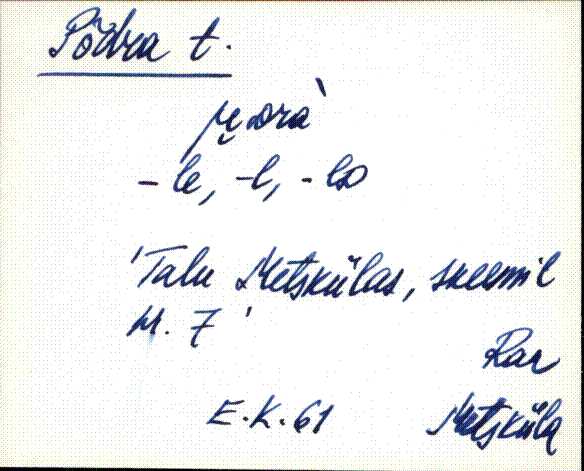 Põdra t.
-le, -l, -lt
'Talu Metskülas, skeemil
nr. 7'
Rar
E.K. 61 Metsküla